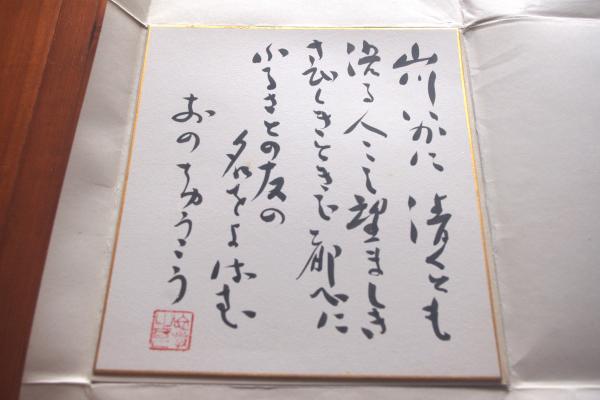 山川いかに 清くとも
人こそ望ましき
さびしきとき 都
ふるさとの友の
名をよばむ
おの ちゅうこう